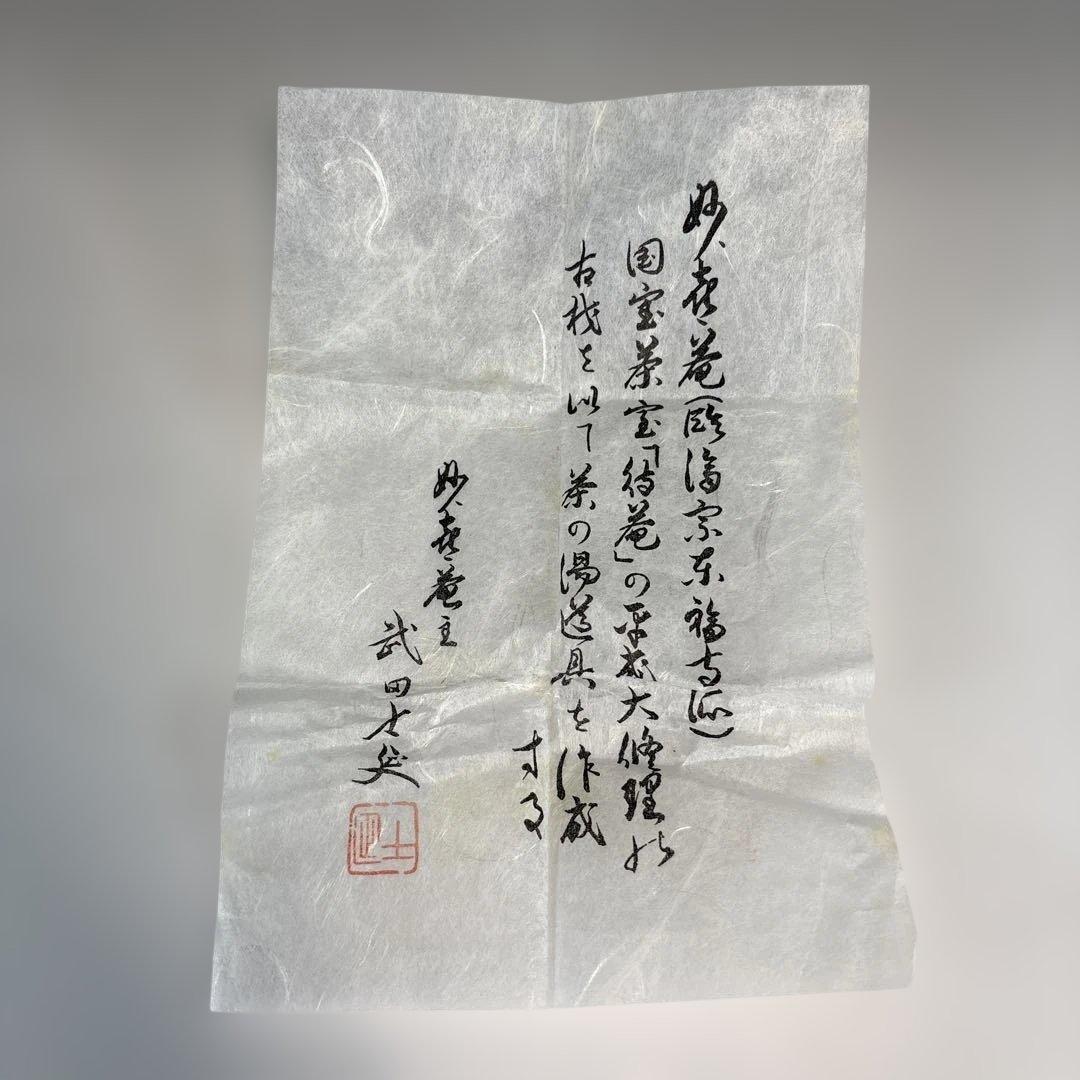 妙喜菴(臨済宗東福寺派)
国宝茶室「待菴」の平成大修理の
古材を以て茶の湯道具を作成
する
妙喜菴主
武田士延
士延